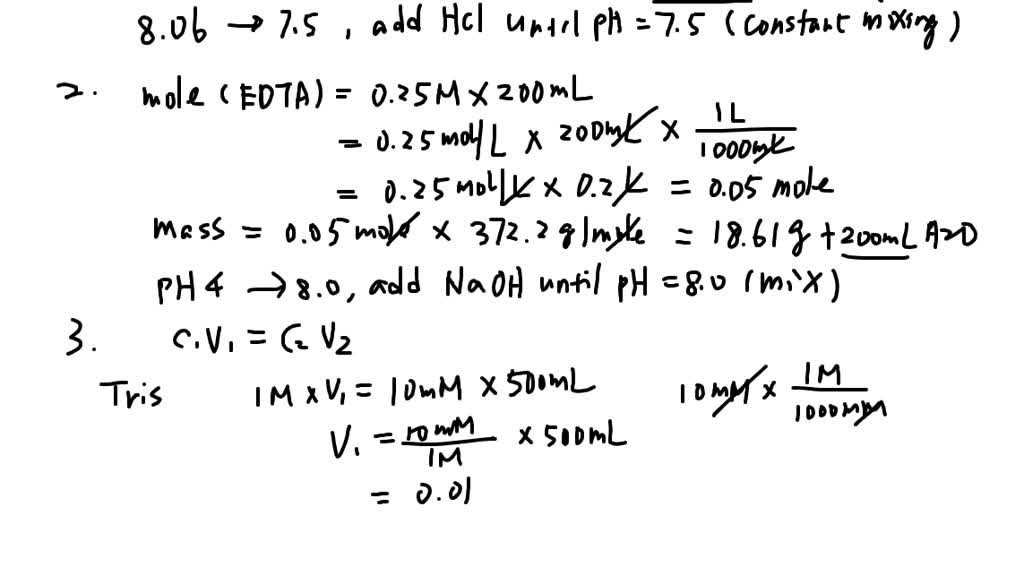 8.06 → 7.5 , add HCl until pH = 7.5 (constant mixing)
2. mole (EDTA) = 0.25M × 200mL
= 0.25 mol/L × 200mL × 1L / 1000mL
= 0.25 mol/L × 0.2 L = 0.05 mole
mass = 0.05 mole × 372.2 g/mole = 18.61g + 200mL H2O
pH 4 → 8.0, add NaOH until pH = 8.0 (mix)
3. C1V1 = C2V2
Tris 1M × V1 = 10mM × 500mL 10mM × 1M / 1000mM
V1 = 10mM / 1M × 500mL
= 0.01